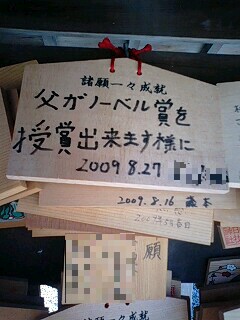 諸願一々成就
父がノーベル賞を
授賞出来ます様に
2009.8.27
2009.8.16
願
諸願一々成就